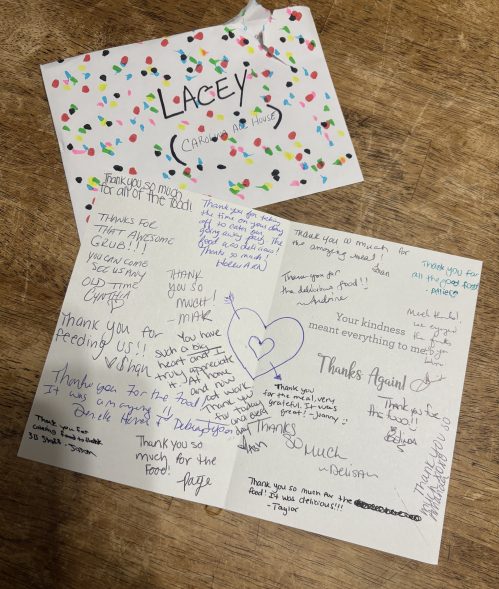 LACEY
(CAROLINA ALE HOUSE)
Thank you so much
for all of the food!
THANKS FOR
THAT AWESOME
GRUB!!!
YOU CAN COME
SEE US ANY
OLD TIME
CYNTHIA
Thank you for taking
the time on your day
off to cater our
going away party. The
food was delicious!
Thanks so much!
THANK
YOU SO
MUCH!
-MAK
Thank you for
feeding us!!
Shan
You have
such a big
heart and I
truly appreciate
it. At home
and now
at work.
Thank you
for today
and every
day
Thank you For the food
It was amazing!!
Thank you for
catering food to
3B Staff - Jason
Thank you so
much for the
Food!
Paige
Thank you so much for
the amazing meal!
Thank you for
all the good food!
Thank you for
the delicious food!!
Your kindness
meant everything to me.
Thanks Again!
Much thanks!
we enjoyed
the
Thank you
for the meal, very
grateful. It was
great! - Jenny
Thank you for
the food!!
THANKS
SO
MUCH
Thank you so
much
Thank you so much for the
food! It was delicious!!!
-Taylor